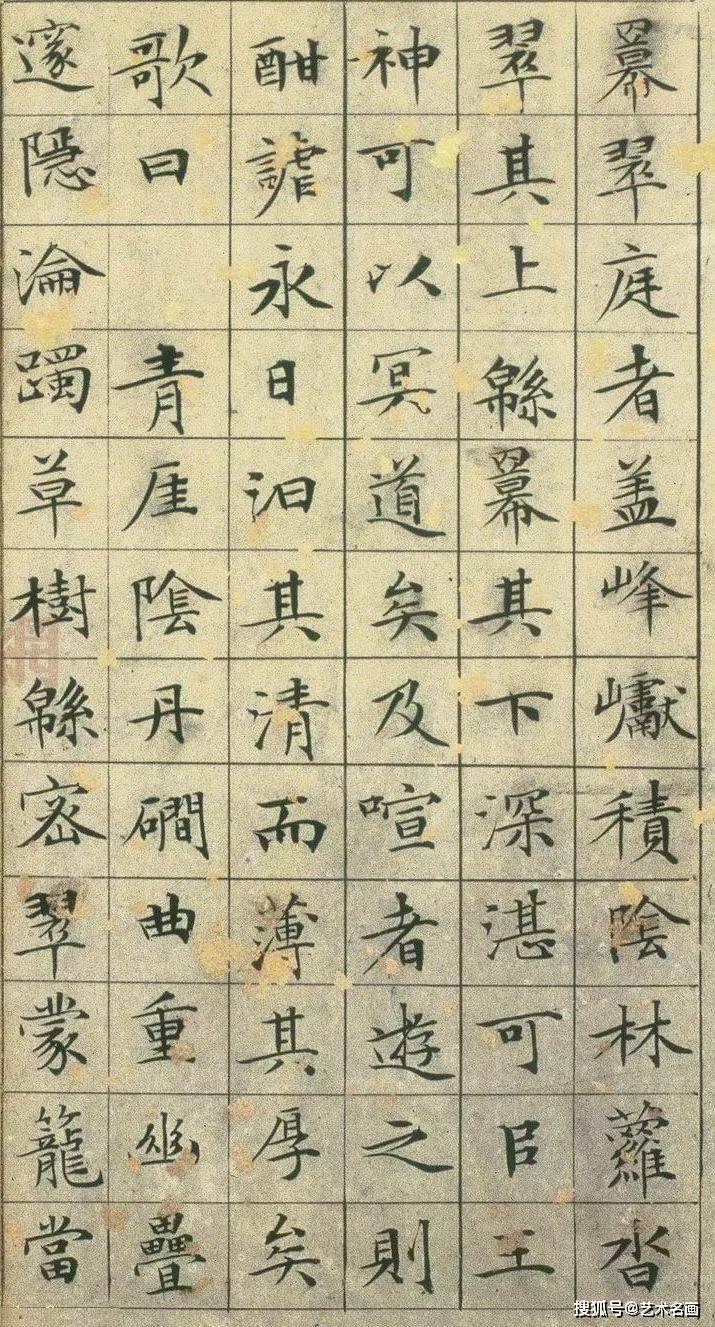 羃翠庭者盖峰巘積陰林蘿沓
翠其上緜羃其下深湛可㠯王
神可以冥道矣及喧者遊之則
酣謔永日汨其清而薄其厚矣
歌曰　青厓陰丹磵曲重幽疊
邃隱淪躅草樹緜密翠蒙籠當
搜狐号@艺术名画